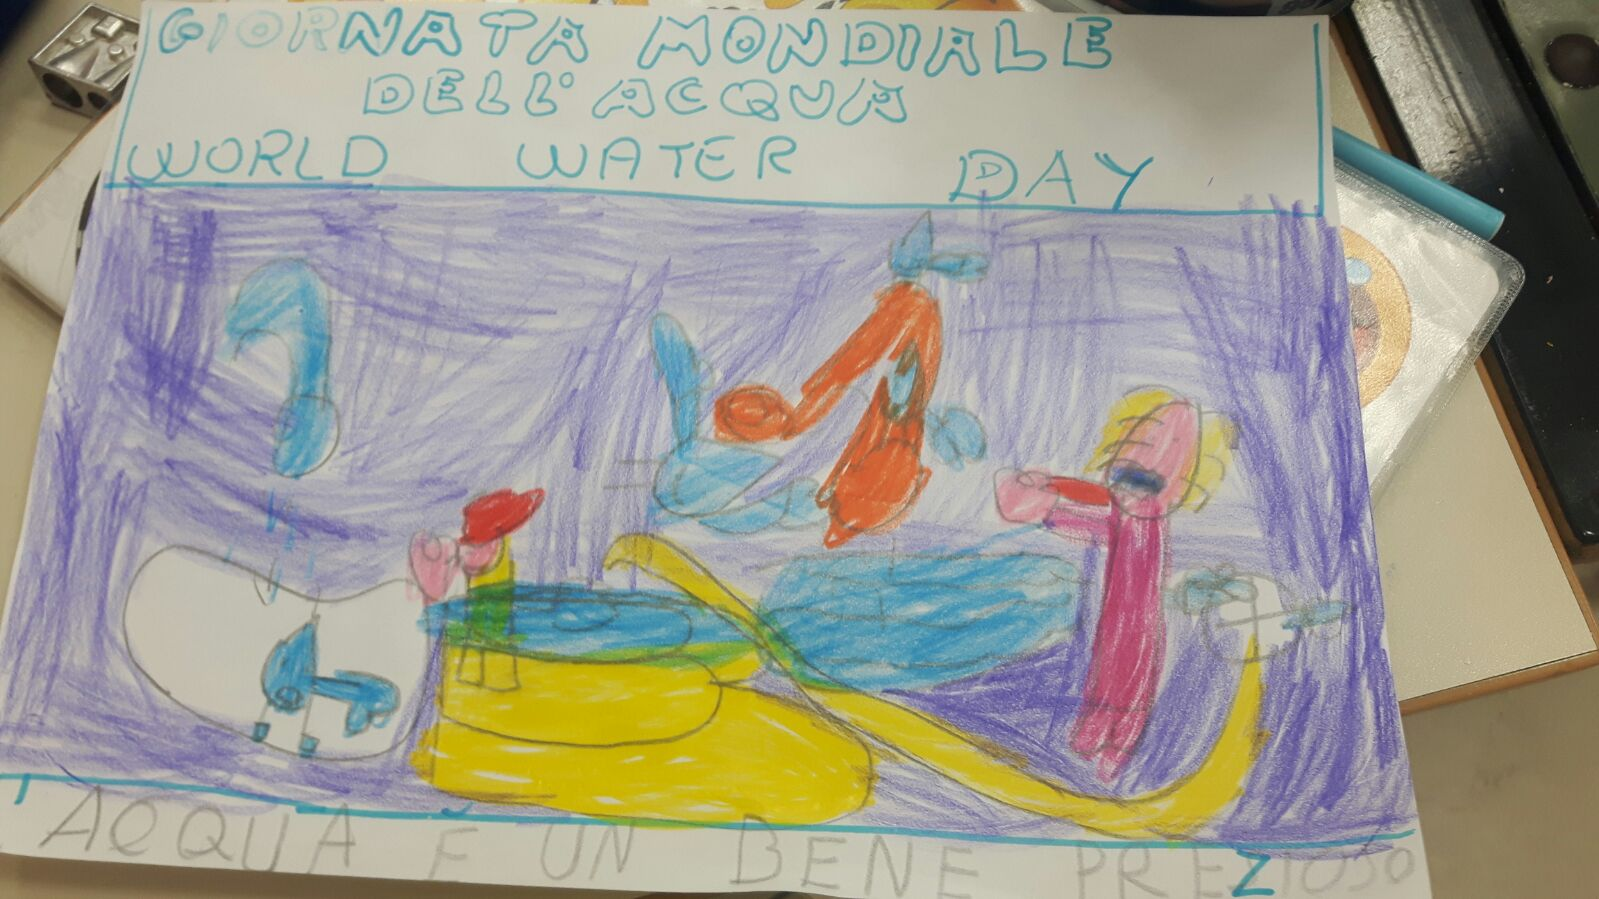 GIORNATA MONDIALE
DELL'ACQUA
WORLD WATER DAY
L'ACQUA È UN BENE PREZIOSO